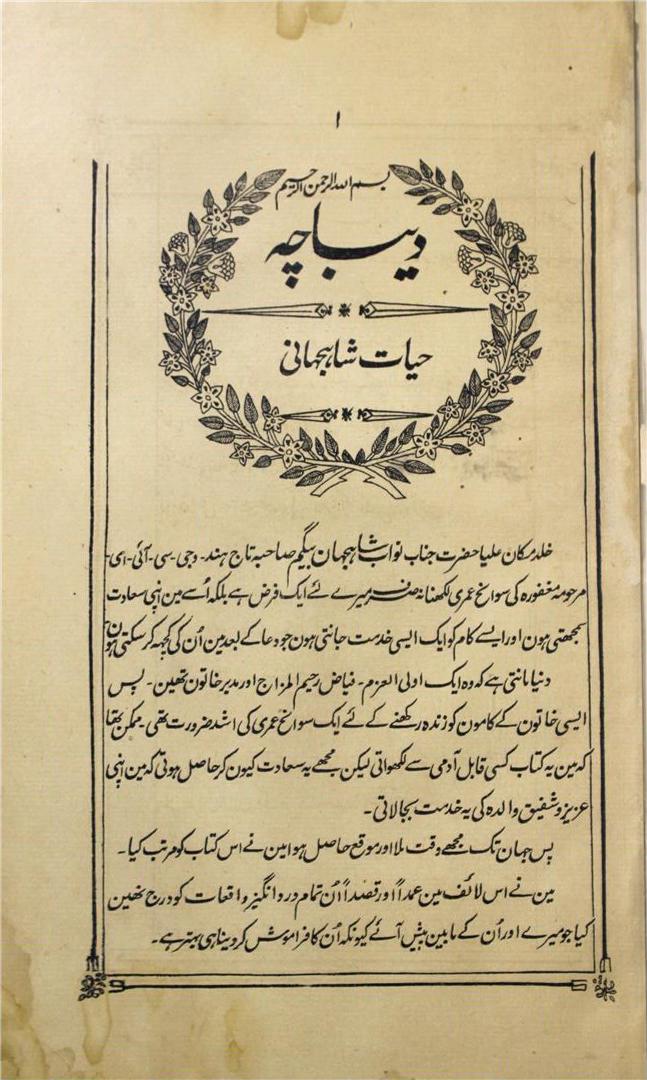 ۱
بسم الله الرحمن الرحیم
دیباچہ
حیات شاہجہانی
خلد مکان علیا حضرت جناب نواب شاہجہان بیگم صاحبہ تاج ہند۔ و جی۔سی۔آئی۔ای۔
مرحومہ مغفورہ کی سوانح عمری لکھنا نہ صرف میرے لئے ایک فرض ہے بلکہ اُسے مین اپنی سعادت
سمجھتی ہون اور ایسے کام کو ایک ایسی خدمت جانتی ہون جو دعا کے بعد مین اُن کی کچہہ کر سکتی ہون
دنیا مانتی ہے کہ وہ ایک اولی العزم۔ فیاض رحیم المزاج اور مدبر خاتون تھین۔ پس
ایسی خاتون کے کامون کو زندہ رکھنے کے لئے ایک سوانح عمری کی اشد ضرورت تھی۔ ممکن تھا
کہ مین یہ کتاب کسی قابل آدمی سے لکھواتی لیکن مجھے یہ سعادت کیون کر حاصل ہوتی کہ مین اپنی
عزیز و شفیق والدہ کی یہ خدمت بجا لاتی۔
پس جہان تک مجھے وقت ملا اور موقع حاصل ہوا مین نے اس کتاب کو مرتب کیا۔
مین نے اس لائف مین عمداً اور قصداً اُن تمام درد انگیز واقعات کو درج نھین
کیا جو میرے اور اُن کے مابین پیش آئے کیونکہ اُن کا فراموش کر دینا ہی بہتر ہے۔